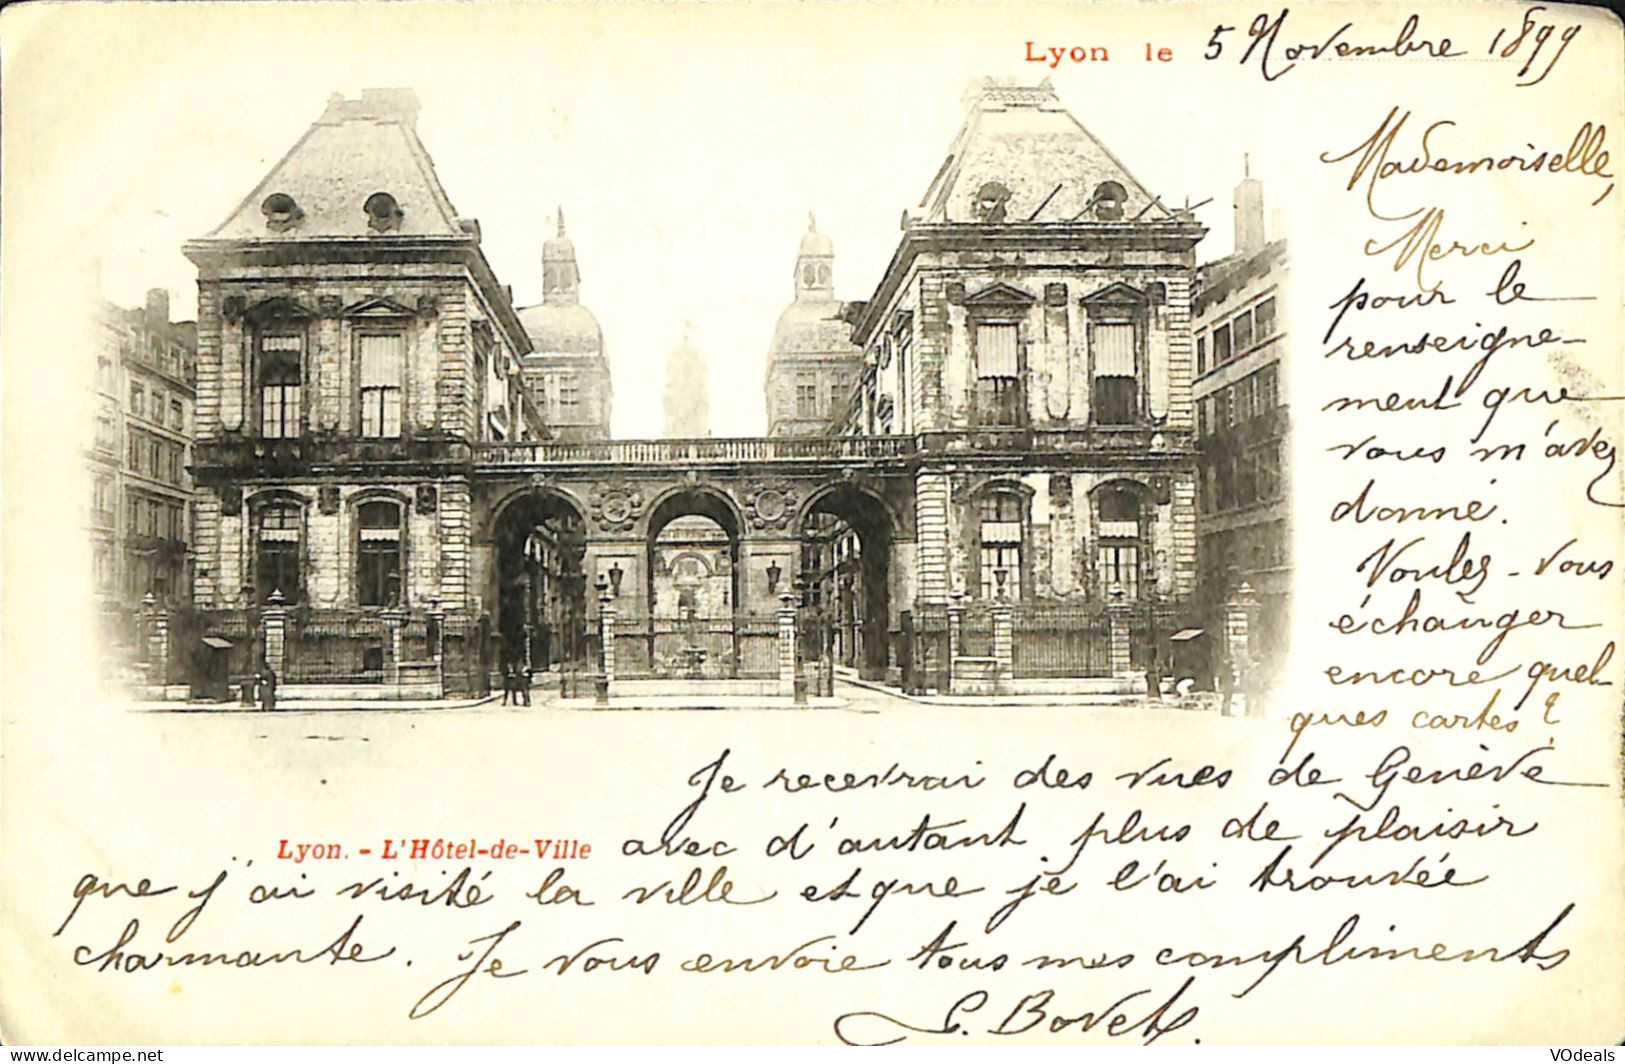 Lyon le 5 Novembre 1899
Mademoiselle,
Merci
pour le
renseigne-
ment que
vous m'avez
donné.
Voulez-vous
échanger
encore quel-
ques cartes?
Je recevrai des vues de Genève
Lyon. - L'Hôtel-de-Ville
avec d'autant plus de plaisir
que j'ai visité la ville et que je l'ai trouvée
charmante. Je vous envoie tous mes compliments
Bovet.
VOdeals